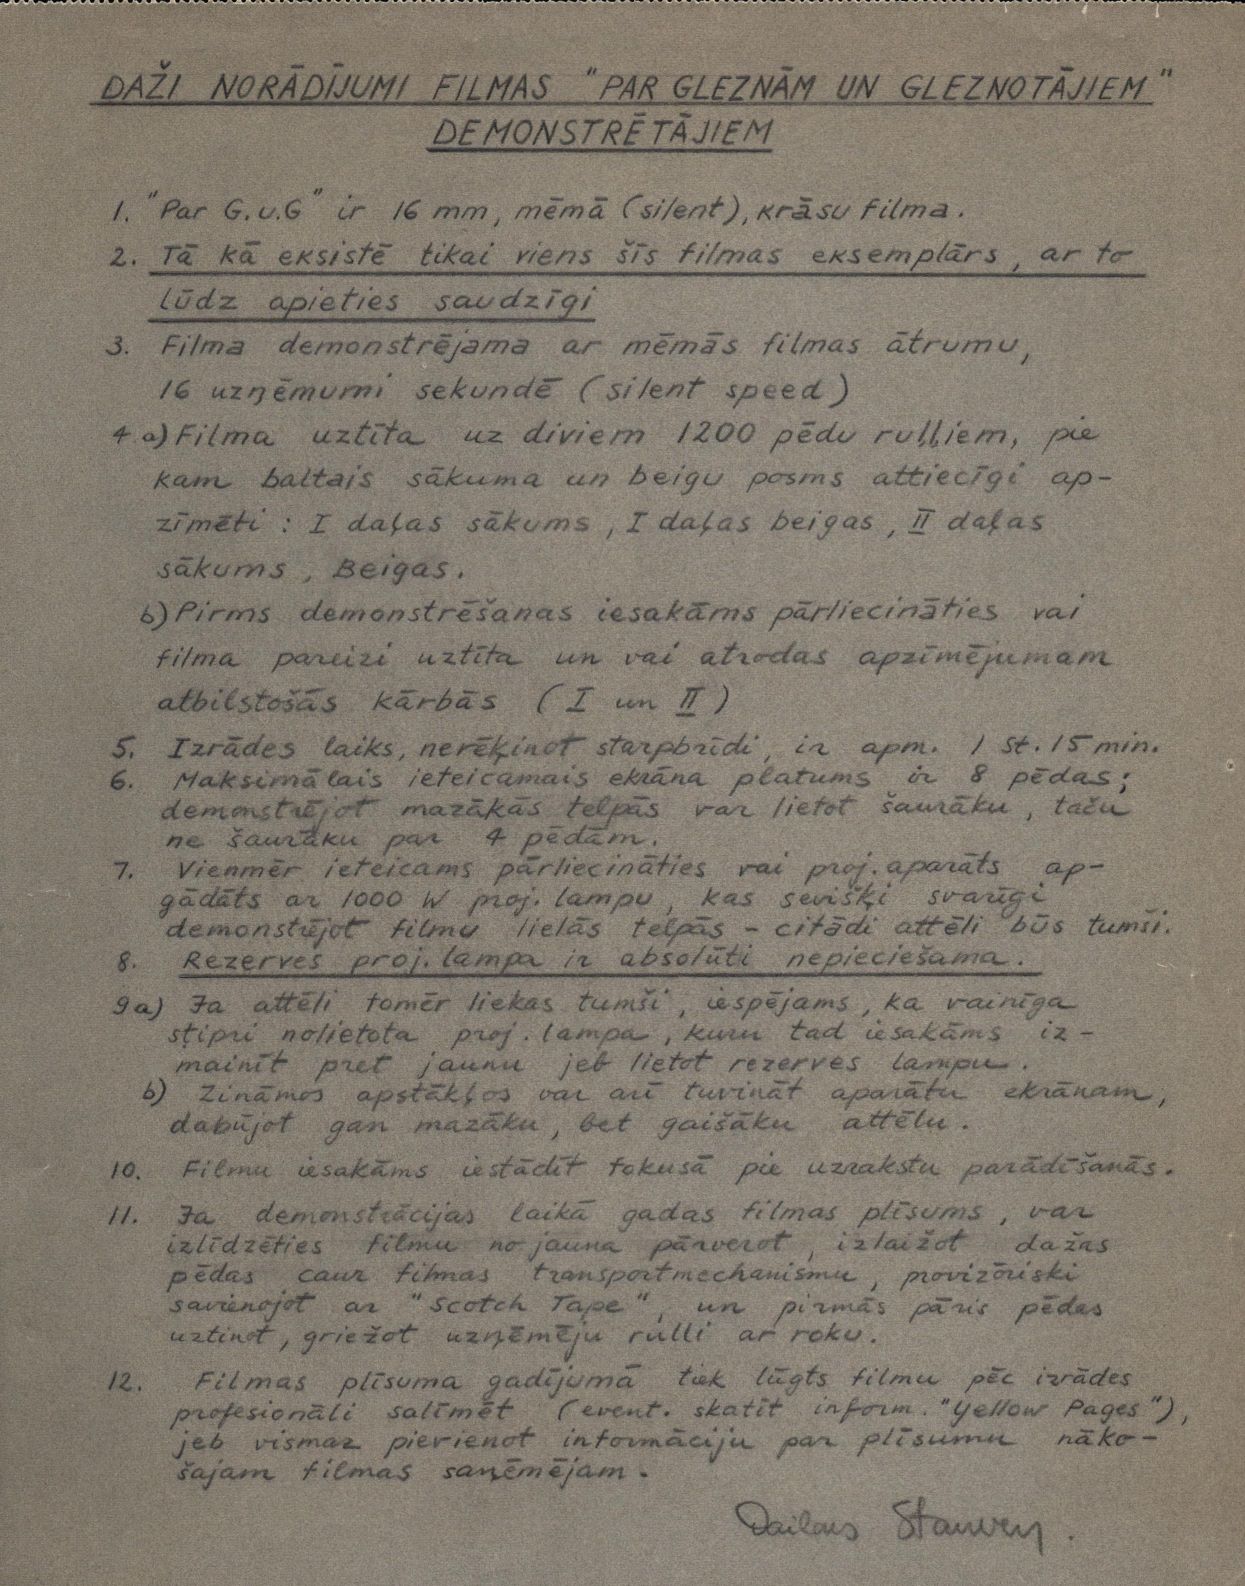 DAŽI NORĀDĪJUMI FILMAS "PAR GLEZNĀM UN GLEZNOTĀJIEM"
DEMONSTRĒTĀJIEM
1. "Par G.u.G" ir 16 mm, mēmā (silent), krāsu filma.
2. Tā kā eksistē tikai viens šīs filmas eksemplārs, ar to
lūdz apieties saudzīgi
3. Filma demonstrējama ar mēmās filmas ātrumu,
16 uzņēmumi sekundē (silent speed)
4 a) Filma uztīta uz diviem 1200 pēdu ruļļiem, pie
kam baltais sākuma un beigu posms attiecīgi ap-
zīmēti : I daļas sākums, I daļas beigas, II daļas
sākums, Beigas.
b) Pirms demonstrēšanas iesakāms pārliecināties vai
filma pareizi uztīta un vai atrodas apzīmējumam
atbilstošās kārbās (I un II)
5. Izrādes laiks, nerēķinot starpbrīdi, ir apm. 1 st. 15 min.
6. Maksimālais ieteicamais ekrāna platums ir 8 pēdas;
demonstrējot mazākās telpās var lietot šaurāku, taču
ne šaurāku par 4 pēdām.
7. Vienmēr ieteicams pārliecināties vai proj. aparāts ap-
gādāts ar 1000 W proj. lampu, kas sevišķi svarīgi
demonstrējot filmu lielās telpās - citādi attēli būs tumši.
8. Rezerves proj. lampa ir absolūti nepieciešama.
9 a) Ja attēli tomēr liekas tumši, iespējams, ka vainīga
stipri nolietota proj. lampa, kuru tad iesakāms iz-
mainīt pret jaunu jeb lietot rezerves lampu.
b) Zināmos apstākļos var arī tuvināt aparātu ekrānam,
dabūjot gan mazāku, bet gaišāku attēlu.
10. Filmu iesakāms iestādīt fokusā pie uzrakstu parādīšanās.
11. Ja demonstrācijas laikā gadas filmas plīsums, var
izlīdzēties filmu no jauna pārverot, izlaižot dažas
pēdas caur filmas transportmechanismu, provizōriski
savienojot ar "Scotch Tape", un pirmās pāris pēdas
uztinot, griežot uzņēmēju rulli ar roku.
12. Filmas plīsuma gadījumā tiek lūgts filmu pēc izrādes
profesionāli salīmēt (event. skatīt inform. "Yellow Pages"),
jeb vismaz pievienot informāciju par plīsumu nāko-
šajam filmas saņēmējam.